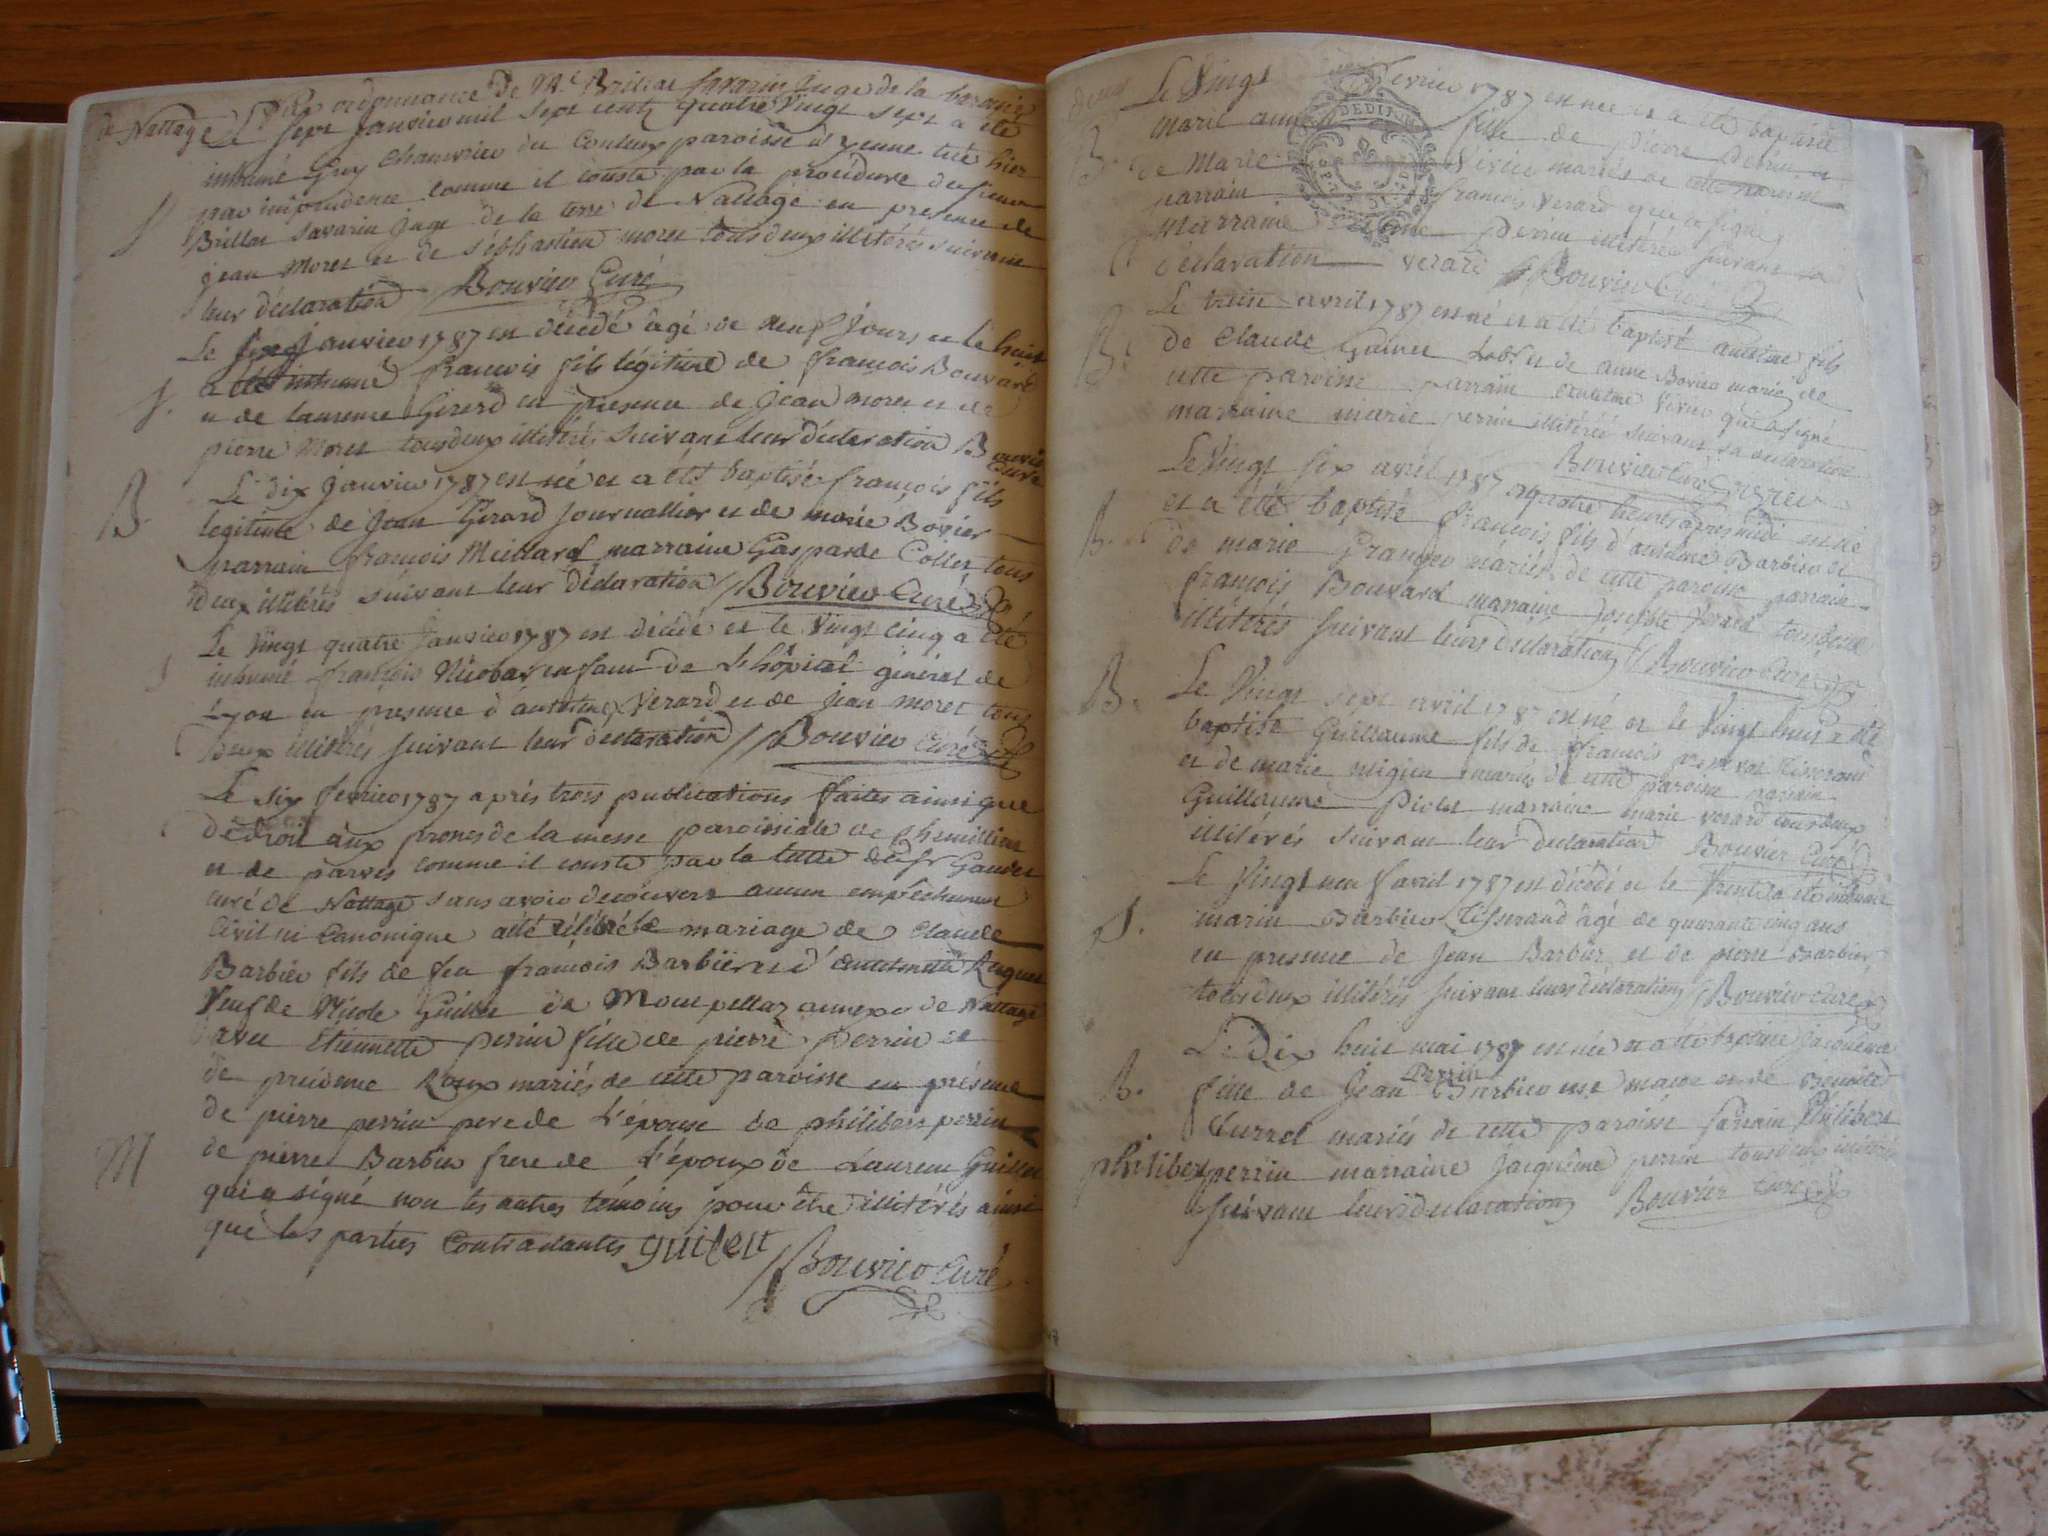 Par ordonnance de Mr Brillat Savarin Juge de la baronie
de Nattage Le sept Janvier mil sept cents quatre vingt sept a été
inhumé Guy Chanvrier du Conteux paroisse d'yenne tué hier
par imprudence comme il conste par la procédure du sieur
Brillat Savarin Juge de la terre de Nattage en presence de
jean Moret et de sébastien moret tous deux illitérés suivant
leur déclaration Bouvier Curé
J.
Le six Janvier 1787 est décédé âgé de neuf Jours et le huit
a été inhumé françois fils légitime de françois Bouvard
et de laurence Girerd en presence de jean moret et de
pierre Moret tous deux illitérés suivant leur déclaration Bouvier
Curé
B
Le dix Janvier 1787 est né et a été baptisé françois fils
legitime de Jean Girard Journallier et de marie Bovier
parrain françois Meillard marraine Gasparde Collet tous
deux illitérés suivant leur déclaration Bouvier Curé
Le Vingt quatre Janvier 1787 est décédé et le Vingt cinq a été
inhumé françois enfant de L'hôpital général de
Lyon en presence d'antelme Verard et de jean moret tous
deux illitérés suivant leur declaration Bouvier Curé
Le six fevrier 1787 aprés trois publications faites ainsi que
de droit aux prones de la messe paroissiale de
et de parves comme il conste par la lettre du sr Gaudet
curé de Nattage sans avoir decouvert aucun empêchement
Civil ni Canonique a été célébré le mariage de Claude
Barbier fils de feu françois Barbier et d'antelmette
Veuf de Nicole Guillet de Montpellaz annexe de Nattage
avec Etiennette perrin fille de pierre perrin et
de prudence Roux mariés de cette paroisse en présence
de pierre perrin pere de L'épouse de philibert perrin
M
de pierre Barbier frere de L'époux de Laurent Guillet
qui a signé non les autres témoins pour être illitérés ainsi
que les parties Contractantes guillet
Bouvier Curé
deux
Le Vingt fevrier 1787 est née et a été baptisée
B.
marie anne fille de pierre perrin et
de Marie Vivier mariés de cette paroisse
parrain françois Verard qui a signé
marraine perrin illitérée suivant sa
déclaration verard Bouvier Curé
Le trois avril 1787 est né et a été baptisé antelme fils
B.
de Claude Labr et de anne Bovier mariés de
cette paroisse parrain antelme Vivier qui a signé
marraine marie perrin illitérée suivant sa declaration
Bouvier Curé
Le Vingt six avril 1787 a quatre heures apres midi est né
B.
et a été baptisé françois fils d'antelme Barbier et
de marie mariés de cette paroisse parrain
françois Bouvard marraine Josephte Verard tous deux
illitérés suivant leurs declarations Bouvier Curé
B.
Le Vingt sept avril 1787 est né et le Vingt huit a été
baptisé Guillaume fils de françois tisserand
et de marie mariés de cette paroisse parrain
Guillaume Piolet marraine marie verard tous deux
illitérés suivant leur declaration Bouvier Curé
Le Vingt neuf avril 1787 est décédé et le trente a été inhumé
J.
marin Barbier Tisserand âgé de quarante cinq ans
en presence de Jean Barbier et de pierre Barbier
tous deux illitérés suivant leurs déclarations Bouvier Curé
Le Dix huit mai 1787 est née et a été baptisée Jacquême
perrin
B.
fille de Jean Barbier et de Benoite
Curret mariés de cette paroisse parrain Philibert
philibert perrin marraine Jacquême perrin tous deux illitérés
suivant leurs déclarations Bouvier curé